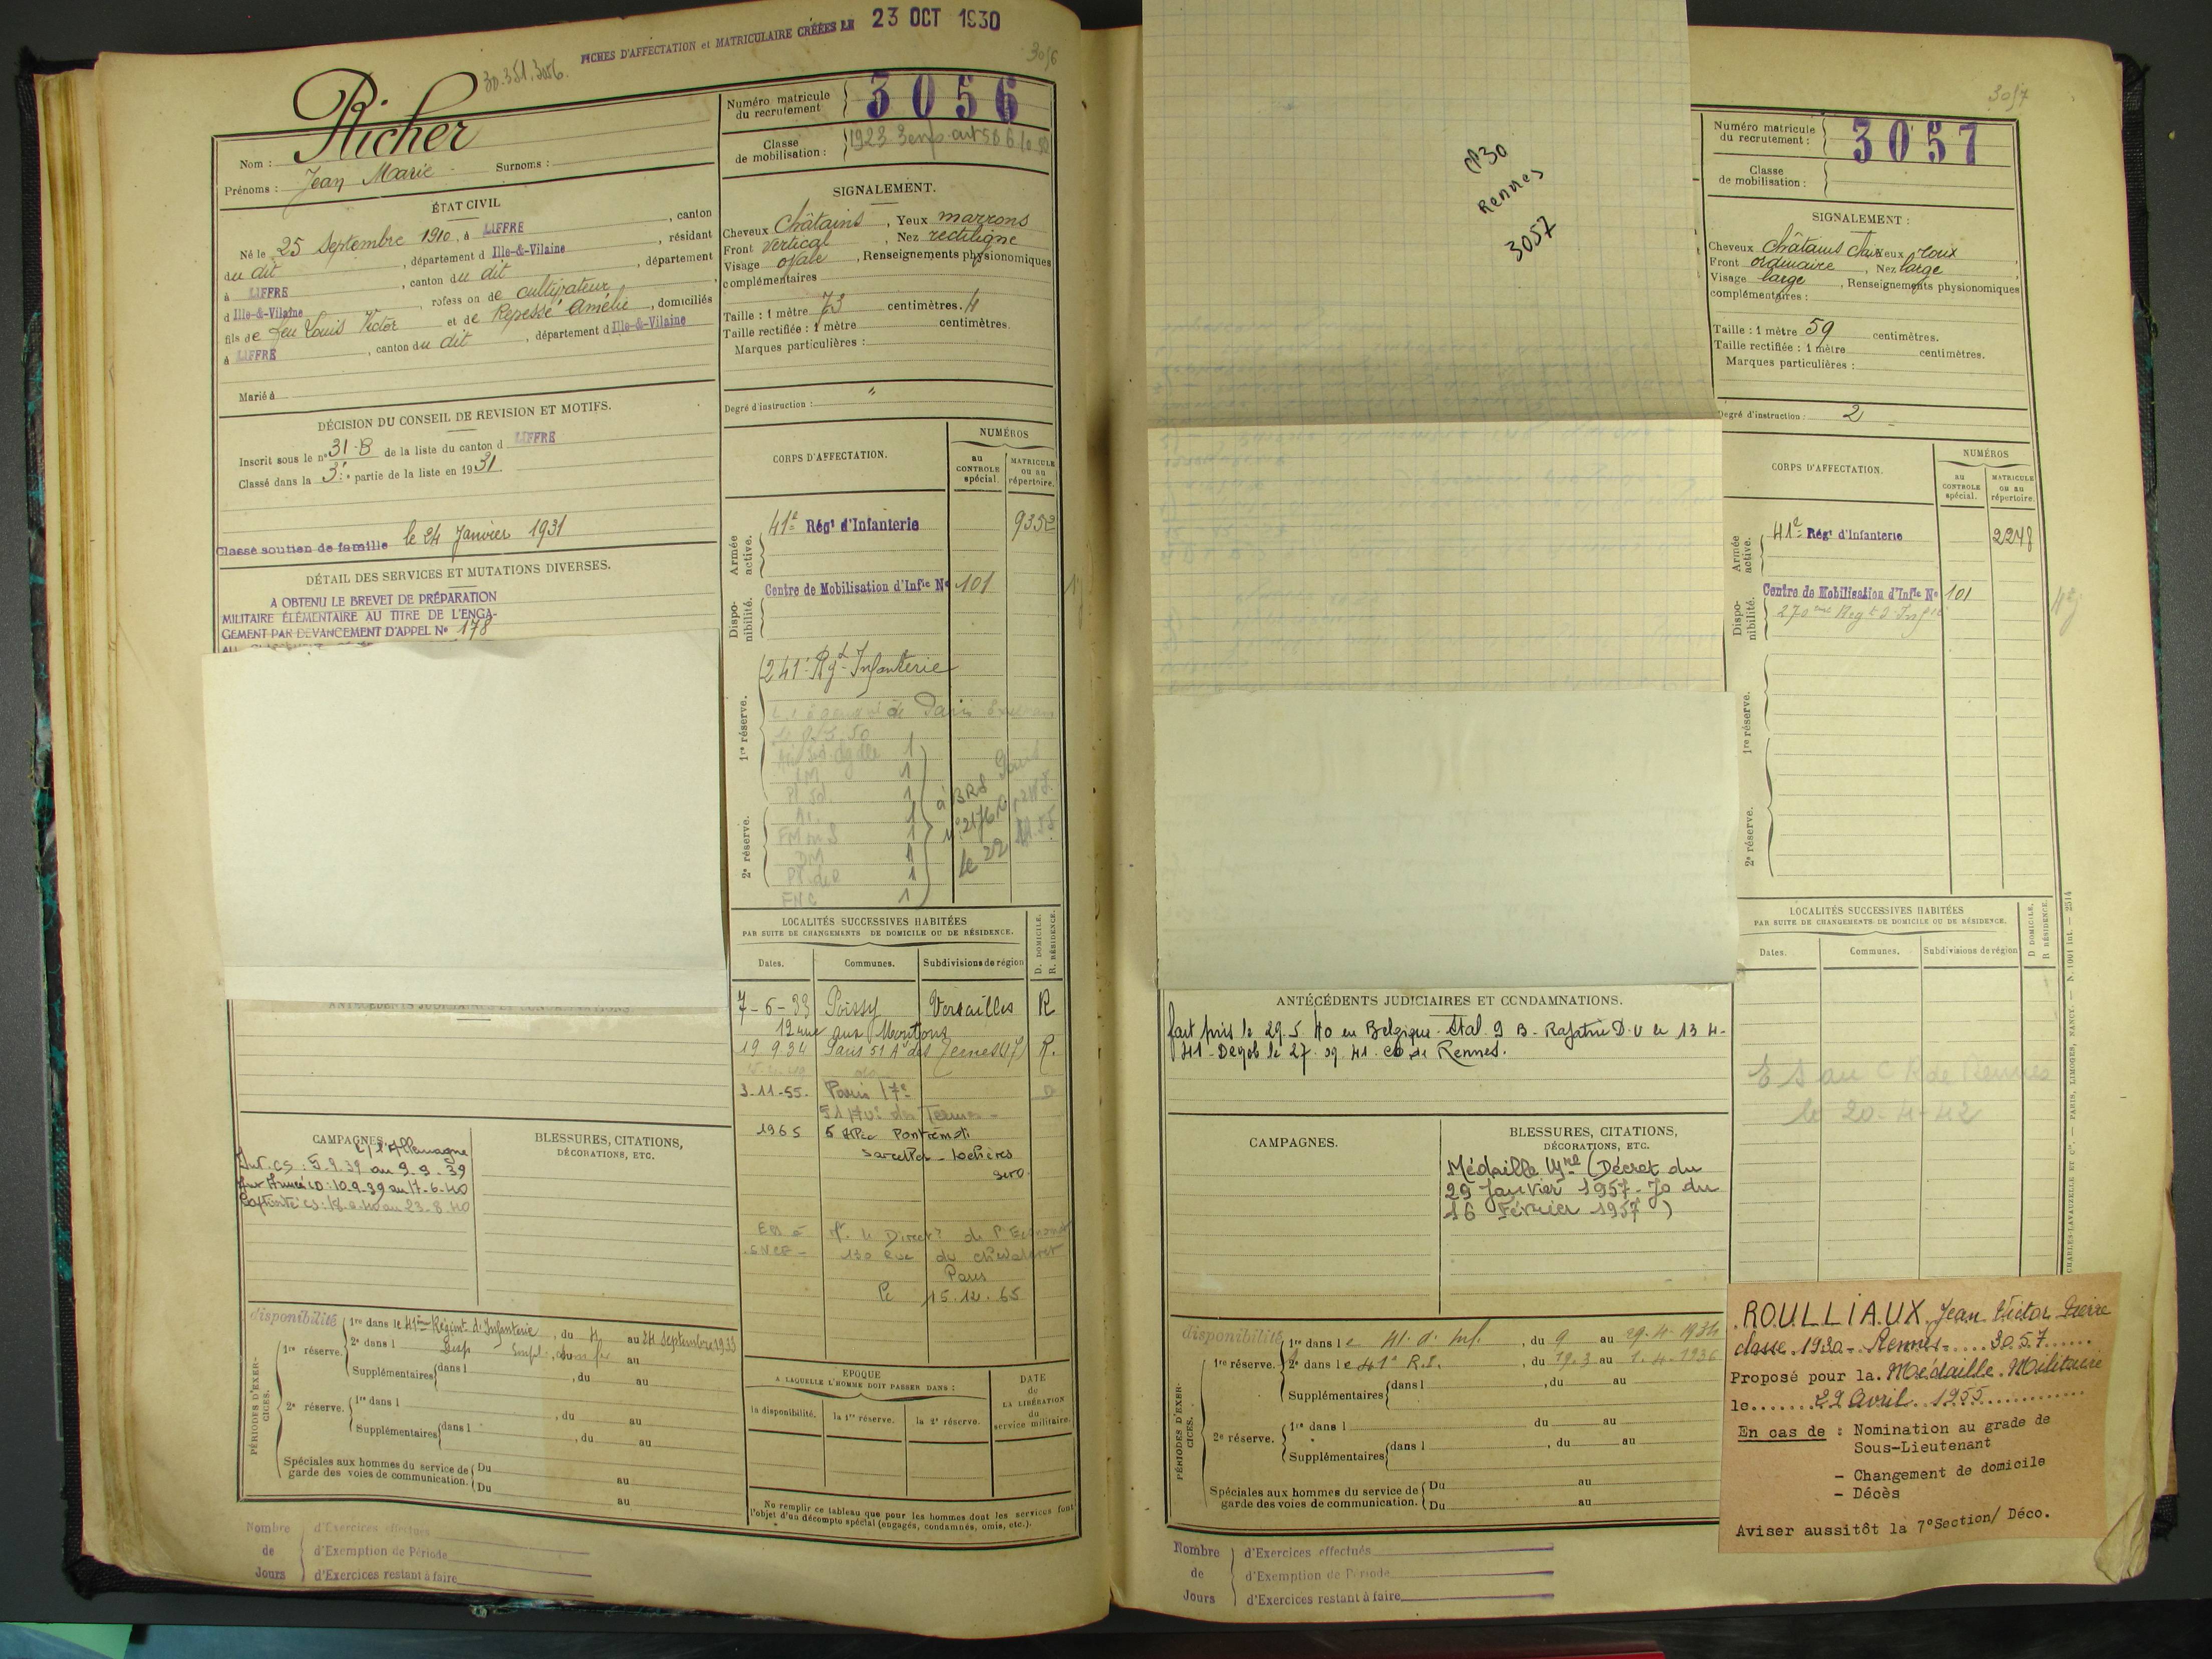 FICHES D'AFFECTATION et MATRICULAIRE CRÉÉES LE 23 OCT 1930
30.351.3056.
3056
Nom : Richer
Prénoms : Jean Marie Surnoms :
ÉTAT CIVIL
Né le 25 Septembre 1910, à LIFFRE, canton
du dit, département d Ille-&-Vilaine, résidant
à LIFFRE, canton du dit, département
d Ille-&-Vilaine, rofess on de cultivateur,
fils de feu Louis Victor et de Repessé Amélie, domiciliés
à LIFFRE, canton du dit, département d Ille-&-Vilaine
Marié à
DÉCISION DU CONSEIL DE REVISION ET MOTIFS.
Inscrit sous le n° 31-B de la liste du canton d LIFFRE
Classé dans la 3e partie de la liste en 1931.
Classé soutien de famille le 24 Janvier 1931
DÉTAIL DES SERVICES ET MUTATIONS DIVERSES.
A OBTENU LE BREVET DE PRÉPARATION
MILITAIRE ÉLÉMENTAIRE AU TITRE DE L'ENGA-
GEMENT PAR DEVANCEMENT D'APPEL N° 178
CAMPAGNES.
c/ l'Allemagne
Int. CS : 5.9.39 au 9.9.39
Aux Armées CD : 10.9.39 au 17-6-40
Captivité CS : 18.6.40 au 23.8.40
BLESSURES, CITATIONS,
DÉCORATIONS, ETC.
disponibilité
PÉRIODES D'EXERCICES.
1re réserve. 1re dans le 41ème Régimt d'Infanterie, du 4 au 24 Septembre 1933
2e dans l , du au
Supplémentaires dans l , du au
2e réserve. 1re dans l , du au
Supplémentaires dans l , du au
Spéciales aux hommes du service de garde des voies de communication. Du au
Du au
Nombre de Jours
d'Exercices effectués
d'Exemption de Période
d'Exercices restant à faire
Numéro matricule du recrutement 3056
Classe de mobilisation : 1923 3 enf
SIGNALEMENT.
Cheveux Châtains, Yeux marrons
Front vertical, Nez rectiligne
Visage ovale, Renseignements physionomiques
complémentaires
Taille : 1 mètre 73 centimètres. 4
Taille rectifiée : 1 mètre centimètres.
Marques particulières :
Degré d'instruction : "
CORPS D'AFFECTATION.
NUMÉROS
au CONTROLE spécial.
MATRICULE ou au répertoire.
Armée active.
41e Régt d'Infanterie 9352
Disponibilité.
Centre de Mobilisation d'Infie N° 101
1re réserve.
241e Rgt Infanterie
2e réserve.
LOCALITÉS SUCCESSIVES HABITÉES
PAR SUITE DE CHANGEMENTS DE DOMICILE OU DE RÉSIDENCE.
Dates. Communes. Subdivisions de région D. DOMICILE. R. RÉSIDENCE.
7-6-33 Poissy Versailles R
12 rue aux Moutons
19.9.34 Paris 51 Av des Ternes (17) R.
3-11-55. Paris 17e D
51 Av. des Ternes
1965 5 Allée Pontrémoli
Sarcelles - Lochères
S. et O.
SNCF - 130 Rue du Chevaleret
Paris
15.12.65
EPOQUE
A LAQUELLE L'HOMME DOIT PASSER DANS :
la disponibilité. la 1re réserve. la 2e réserve.
DATE de LA LIBÉRATION du service militaire.
Ne remplir ce tableau que pour les hommes dont les services font
l'objet d'un décompte spécial (engagés, condamnés, omis, etc.).
CP30
Rennes
3057
ANTÉCÉDENTS JUDICIAIRES ET CONDAMNATIONS.
fait pris le 29.5.40 en Belgique. Stal. 9 B - Rapatrié D.U le 13 4-
41 - Degob le 27.09.41. CD de Rennes.
CAMPAGNES.
BLESSURES, CITATIONS,
DÉCORATIONS, ETC.
Médaille Mre (Décret du
29 Janvier 1957 - Jo du
16 Février 1957)
disponibilité
PÉRIODES D'EXERCICES.
1re réserve. 1re dans le 41 d'Inf., du 9 au 29-4-1934
2e dans le 41e R.I., du 19.3 au 1.4.1936
Supplémentaires dans l , du au
2e réserve. 1re dans l du au
Supplémentaires dans l , du au
Spéciales aux hommes du service de garde des voies de communication. Du au
Du au
Nombre de Jours
d'Exercices effectués
d'Exemption de Période
d'Exercices restant à faire
3057
Numéro matricule du recrutement : 3057
Classe de mobilisation :
SIGNALEMENT :
Cheveux châtains Yeux roux
Front ordinaire, Nez large
Visage large, Renseignements physionomiques
complémentaires :
Taille : 1 mètre 59 centimètres.
Taille rectifiée : 1 mètre centimètres.
Marques particulières :
Degré d'instruction : 2
CORPS D'AFFECTATION.
NUMÉROS
au CONTROLE spécial.
MATRICULE ou au répertoire.
Armée active.
41e Régt d'Infanterie 2248
Disponibilité.
Centre de Mobilisation d'Infie N° 101
270eme Regt d'Infie
1re réserve.
2e réserve.
LOCALITÉS SUCCESSIVES HABITÉES
PAR SUITE DE CHANGEMENTS DE DOMICILE OU DE RÉSIDENCE.
Dates. Communes. Subdivisions de région D DOMICILE. R RÉSIDENCE.
E S au C R de Rennes
le 20-4-42
CHARLES-LAVAUZELLE ET Cie. — PARIS, LIMOGES, NANCY. — N. 1001 Int. — 2514
ROULLIAUX Jean Victor Pierre
classe 1930 - Rennes - 3057
Proposé pour la Médaille Militaire
le 22 Avril 1955
En cas de : Nomination au grade de
Sous-Lieutenant
- Changement de domicile
- Décès
Aviser aussitôt la 7°Section/ Déco.